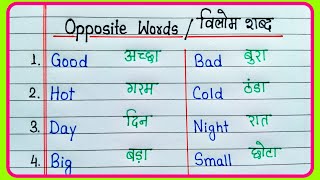 Opposite Words / विलोम शब्द
1. Good अच्छा Bad बुरा
2. Hot गरम Cold ठंडा
3. Day दिन Night रात
4. Big बड़ा Small छोटा